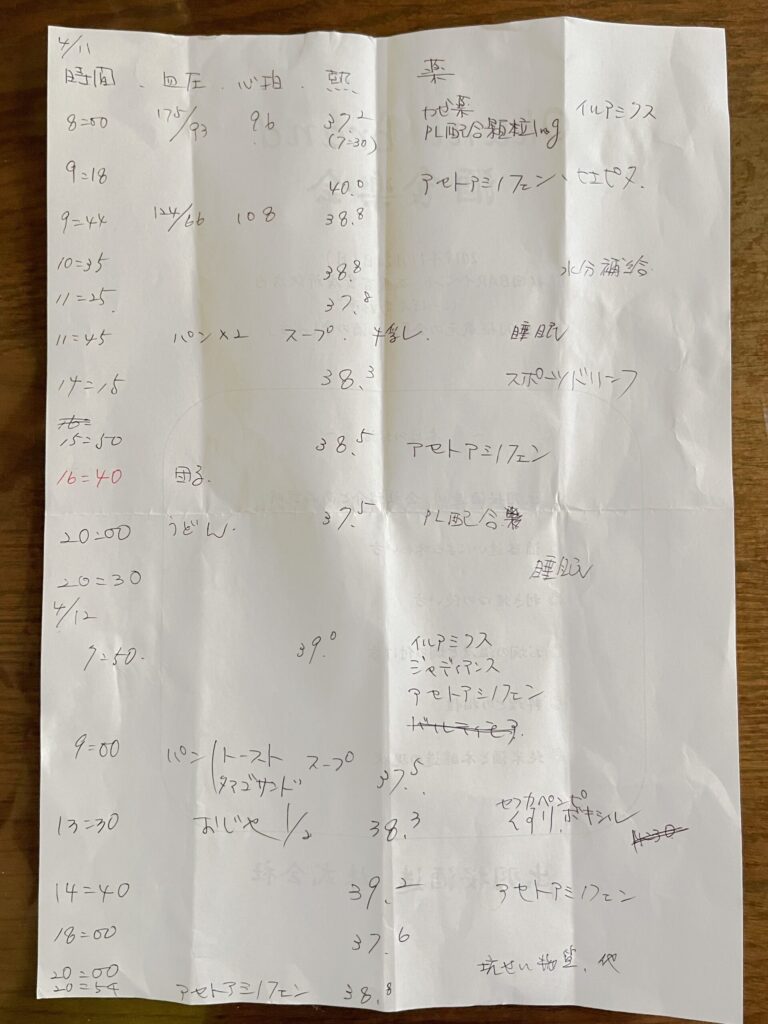 4/11
時間 . 血圧 . 心拍 . 熱 薬
8=00 175/93 96 37.2 (7=30) かぜ薬 イルアミクス
PL配合顆粒1mg
9=18 40.0 アセトアミノフェン、ヒエピタ.
9=44 124/66 108 38.8
10=35 38.8 水分補給
11=25. 37.8
11=45 パン×2 スープ. 牛乳. 睡眠
14=15 38.3 スポーツドリンク
15=50 38.5 アセトアミノフェン
16=40 団子.
20=00 うどん. 37.5 PL配合
20=30 睡眠
4/12
7=50. 39.0 イルアミクス
ジャディアンス
アセトアミノフェン
9=00 パン(トースト スープ 37.5.
タマゴサンド
13=30 おじや 1/2 38.3 セフカペンピ
ボキシル
14=40 39.2 アセトアミノフェン
18=00 37.6
20=00 抗せい物質、他
20=54 アセトアミノフェン 38.8